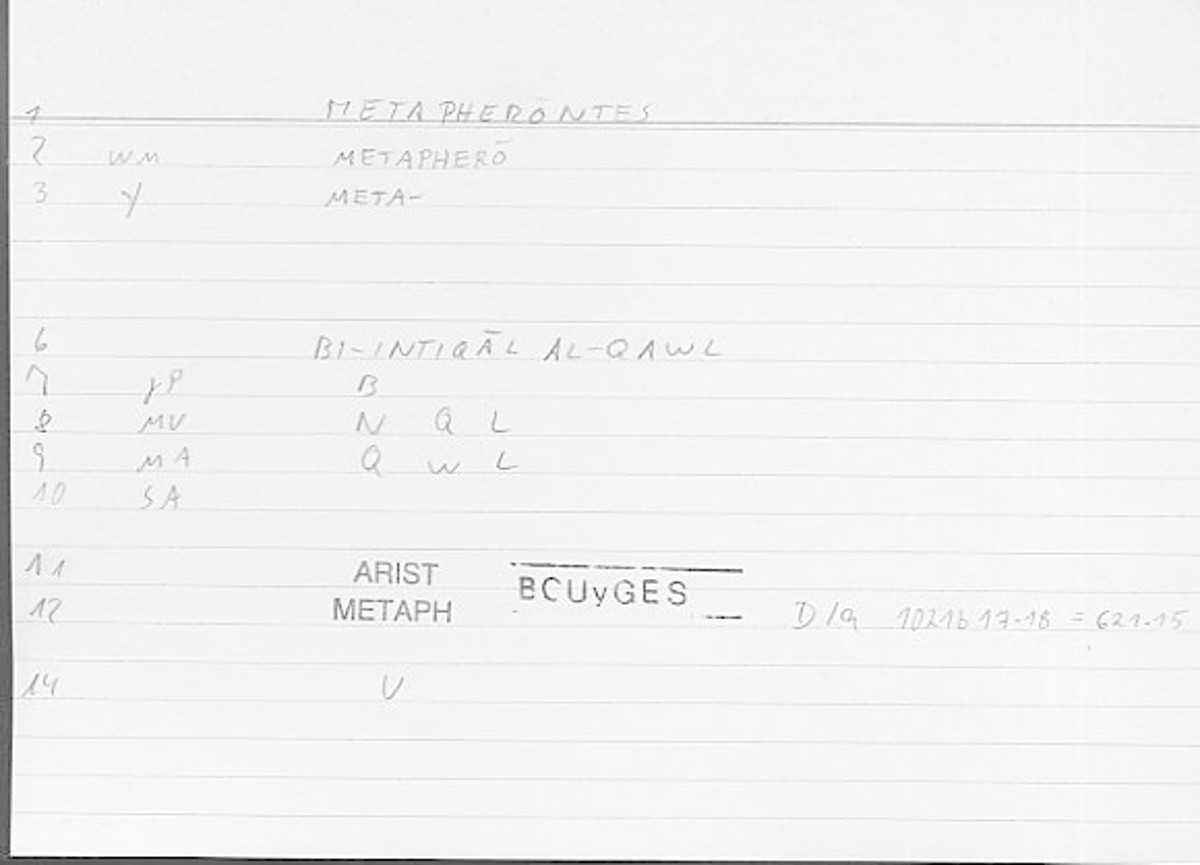 1 METAPHERÓNTES
2 WM METAPHERŌ
3 y META-
6 BI-INTIQĀL AL-QAWL
7 yP B
8 MV N Q L
9 MA Q W L
10 SA
11 ARIST BCUyGES
12 METAPH D/a 1021b 17-18 = 621.15
14 V